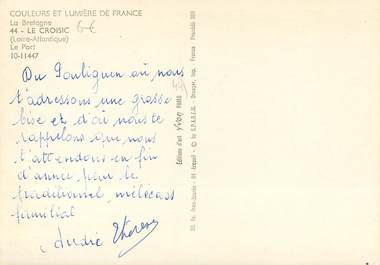 COULEURS ET LUMIÈRE DE FRANCE
La Bretagne
44 - LE CROISIC 6€
(Loire-Atlantique)
Le Port
10-11447
Du Pouliguen où nous
t'adressons une grosse
bise et d'où nous te
rappelons que nous
t'attendons en fin
d'année pour le
traditionnel mélécass
familial
André
Editions d'art YVON PARIS